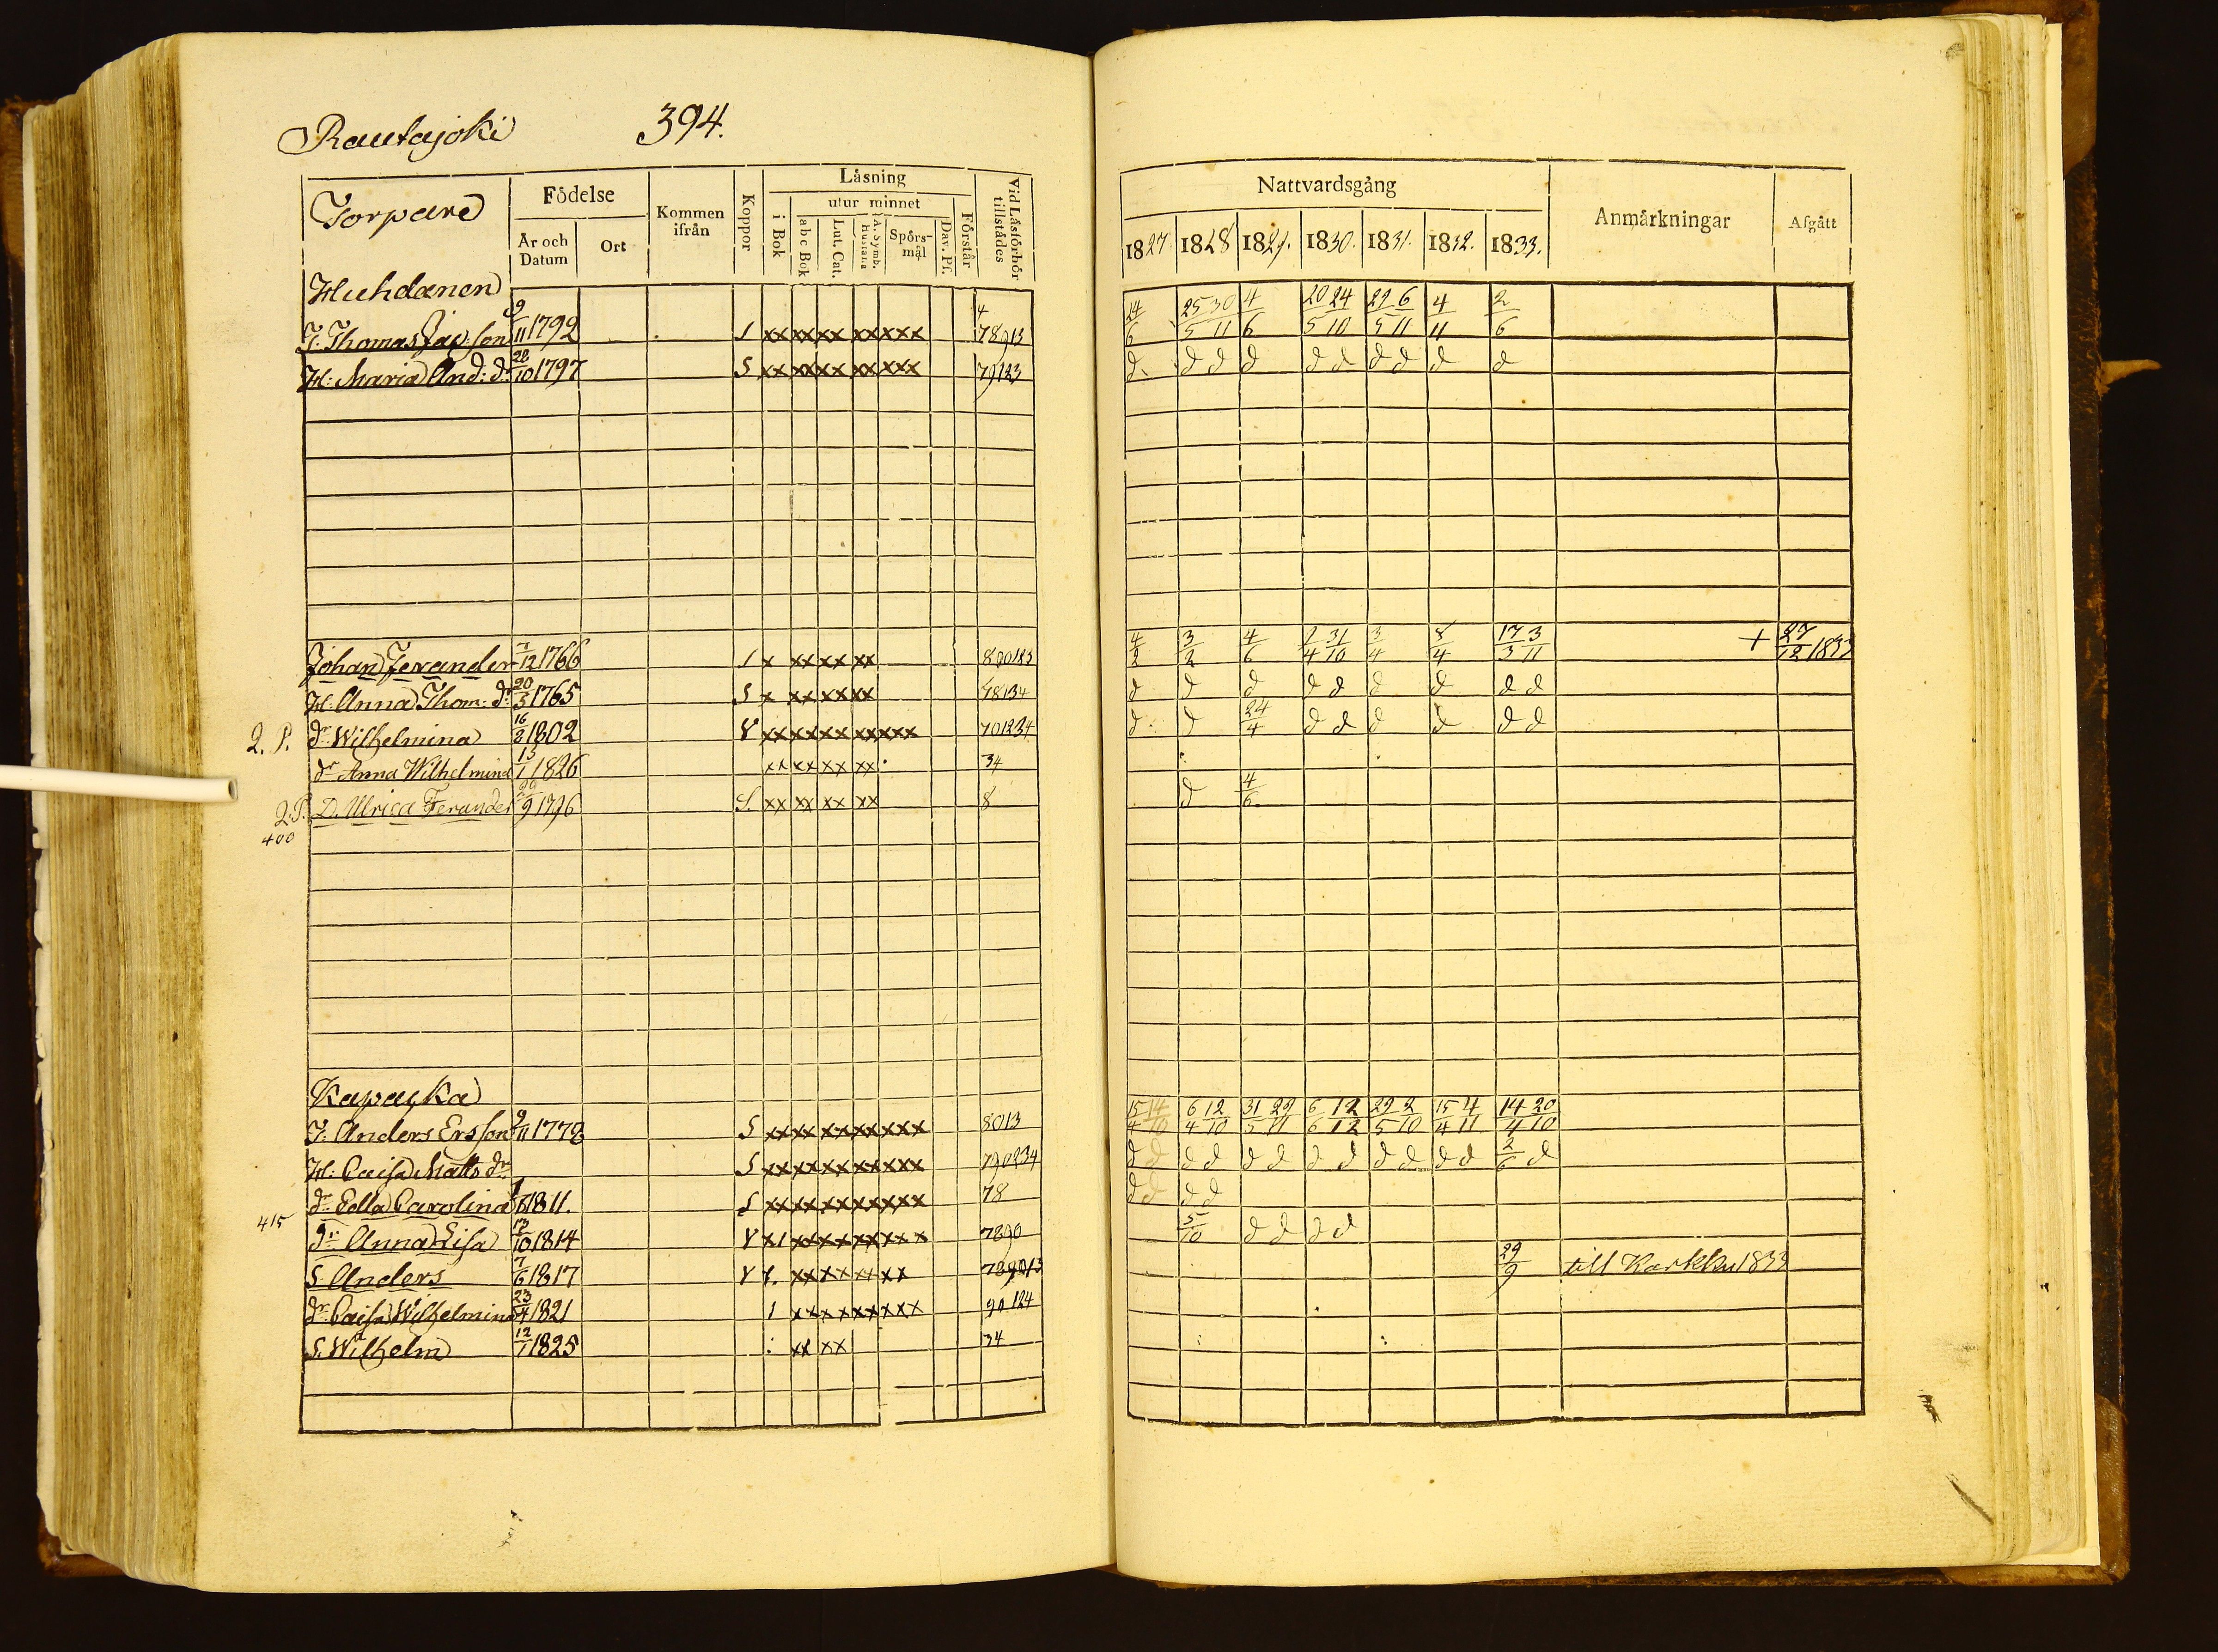 Rautajoki 394.
Torpare Födelse Kommen ifrån Koppor Läsning Vid Läsförhör tillstädes
År och Datum Ort i Bok utur minnet Förstår
abc Bok Lut. Cat. A. Symb. Hustafla Spörsmål Dav. Ps.
Nattvardsgång Anmärkningar Afgått
1827 1828 1829. 1830. 1831. 1832. 1833.
Huhdanen
T. Thomas Jac:son 9/11 1792 xx xx xx xx xxx 4 78913 14/6 25/5 30/11 4/6 20/5 24/10 29/5 6/11 4/11 2/6
H: Maria And: dr 28/10 1797 S xx xx xx xx xxx 79123 d d d d d d d d d d
Johan Ferander 7/12 1766 x xx xx xx 890183 4/2 3/2 4/6 2/4 31/10 3/4 8/4 17/3 3/11 + 27/12 1833
H: Anna Thom: dr 20/3 1765 S x xx xx xx 78134 d d d d d d d d d
2. P. dr Wilhelmina 16/2 1802 V xx xx xx xx xxx 701234 d d 24/4 d d d d d d
dr Anna Wilhelmina 15/1 1826 xx xx xx xx 34
2. P. D. Ulrica Ferander 9 1796 S xx xx xx xx 8 d 4/6
400
Kapakka
T. Anders Ersson 9/11 1778 S xx xx xx xx xxx 8013 15/4 14/10 6/4 12/10 31/5 29/11 6/6 12/12 29/5 2/10 15/4 4/11 14/4 20/10
H: Caisa Matts dr S xx xx xx xx xxx 790234 d d d d d d d d d d d d 2/6 d
dr Edla Carolina 1811. S xx xx xx xx xxx 78 d d d d
415 dr Anna Lisa 13/10 1814 V x1 xx xx xx xxx 7890 5/10 d d d d
S. Anders 7/6 1817 V xx xx xx xx 789013 29/9 till Karkku 1833
dr Caisa Wilhelmina 23/4 1821 1 xx xx xx xx 90124
S. Wilhelm 12/1 1825 xx xx 34